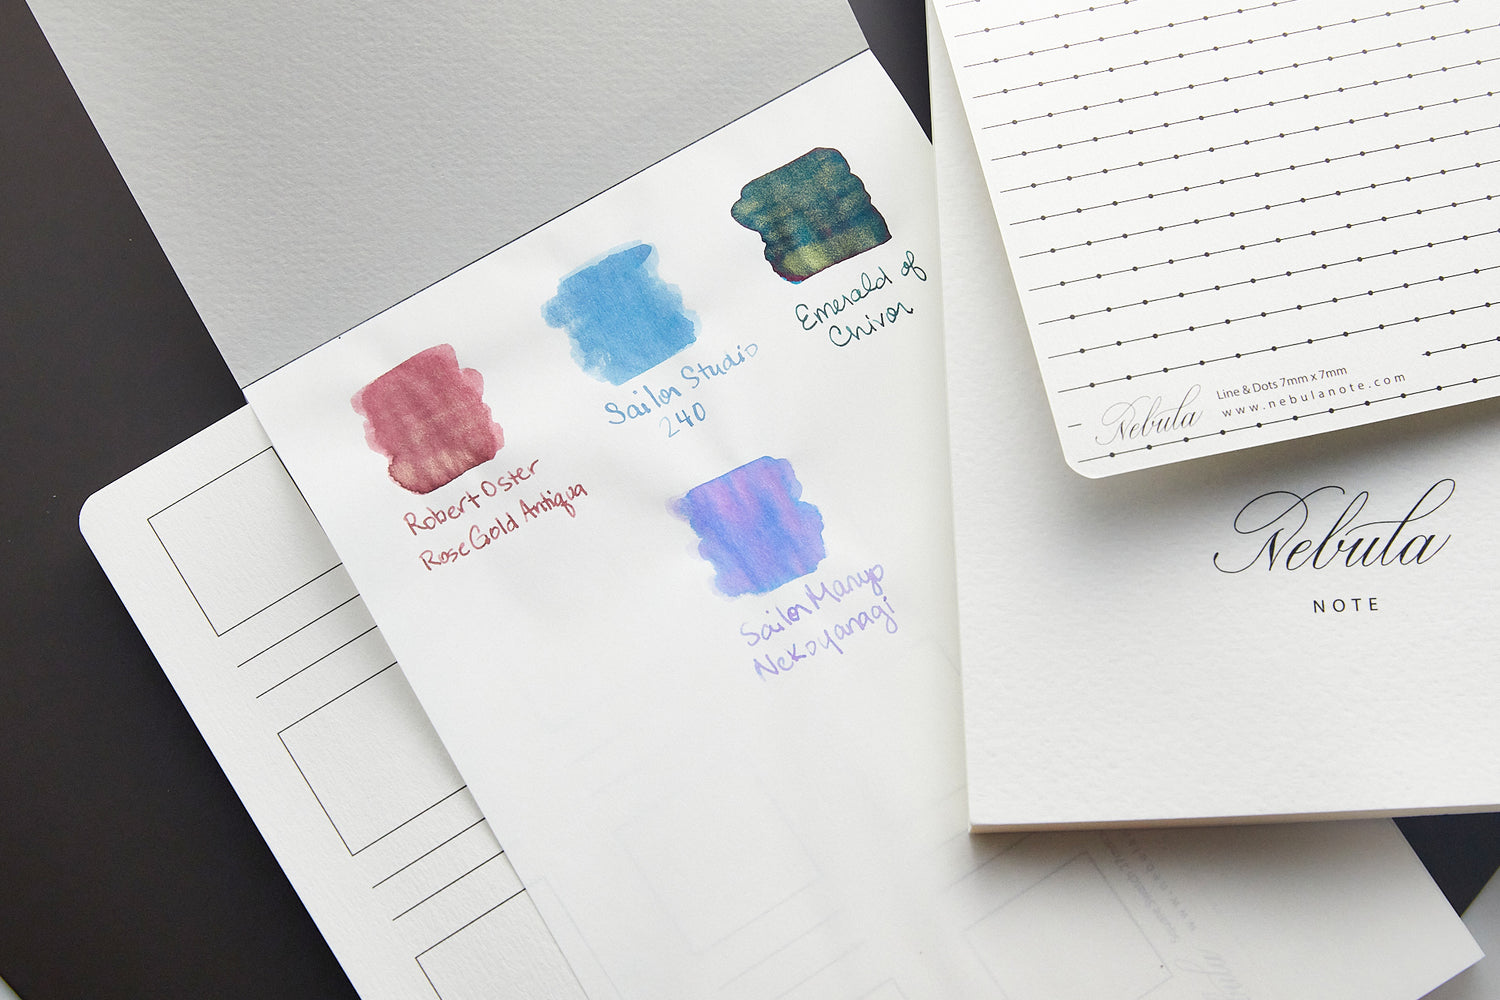 Emerald of
Chivor
Sailor Studio
240
Robert Oster
Rose Gold Antiqua
Sailor Manyo
Nekoyanagi
Nebula
Line & Dots 7mm x 7mm
www.nebulanote.com
Nebula
NOTE